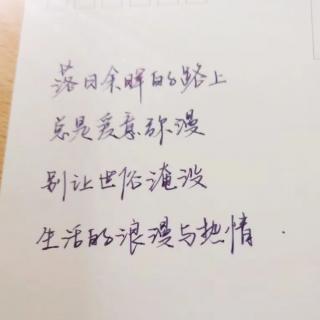 落日余晖的路上
总是爱意弥漫
别让世俗淹没
生活的浪漫与热情.